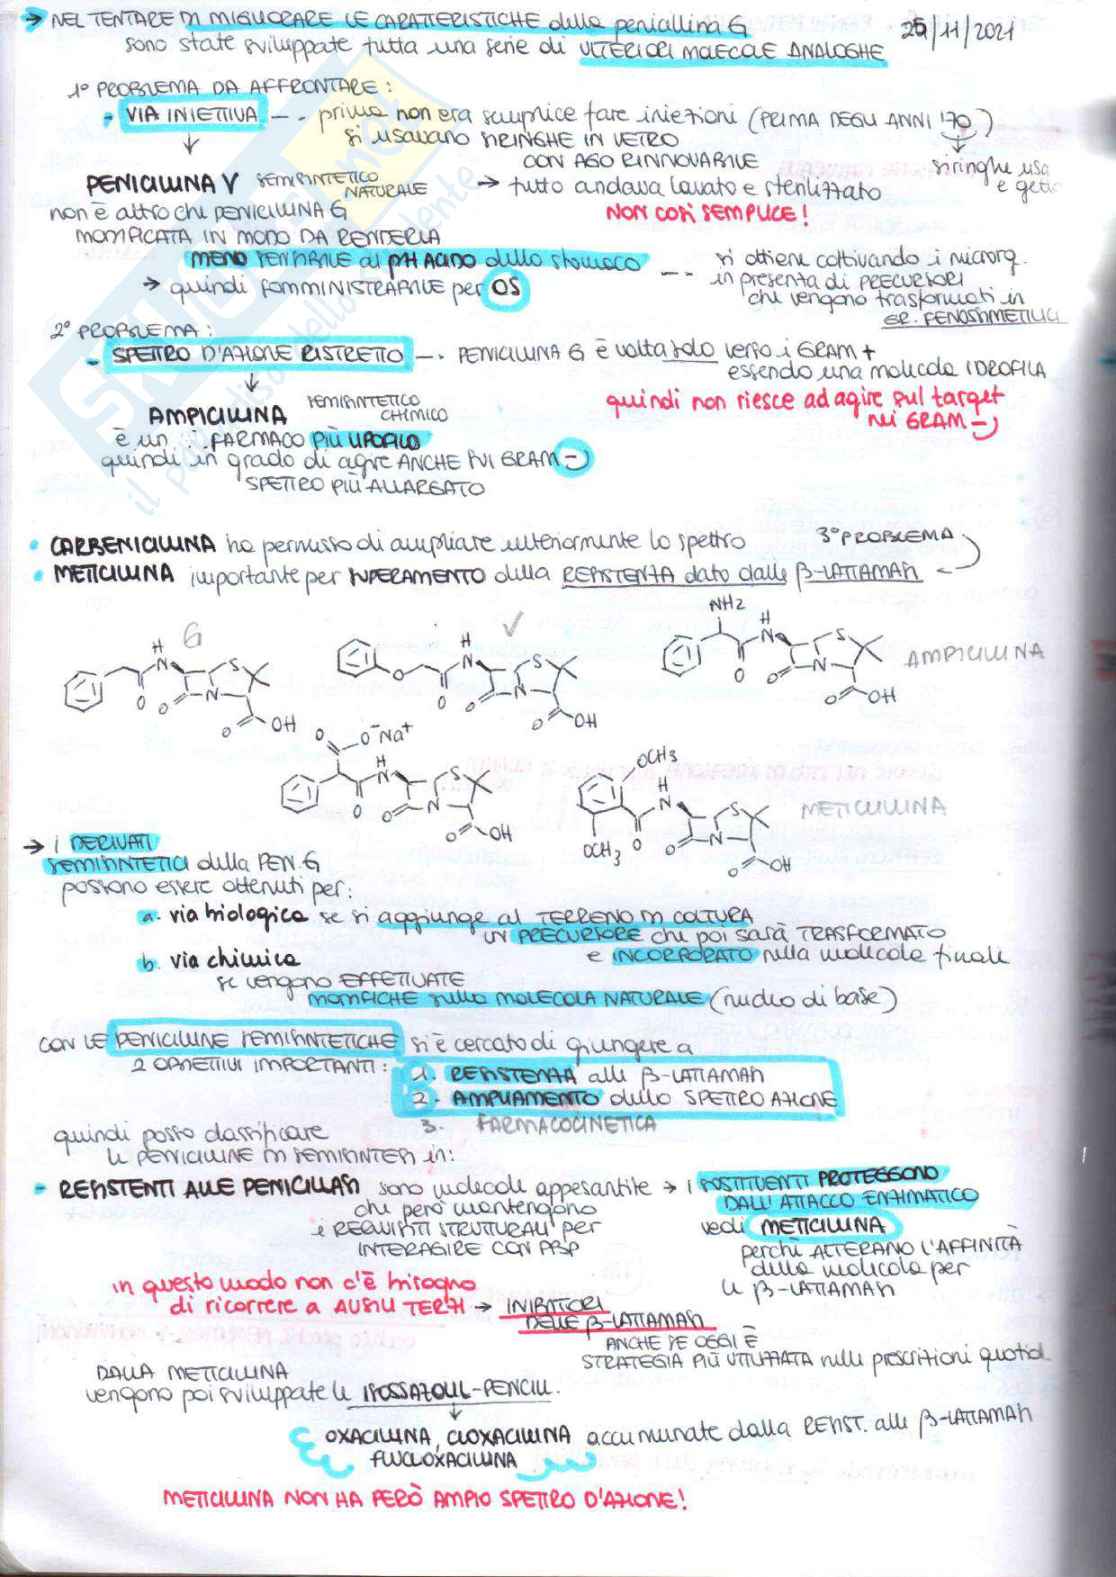 → NEL TENTARE DI MIGLIORARE LE CARATTERISTICHE della penicillina G
25/11/2021
sono state sviluppate tutta una serie di ULTERIORI MOLECOLE ANALOGHE
1° PROBLEMA DA AFFRONTARE:
- VIA INIETTIVA -- prima non era semplice fare iniezioni (PRIMA DEGLI ANNI '70)
si usavano SIRINGHE IN VETRO
CON AGO RINNOVABILE
siringhe usa
e getta
PENICILLINA V SEMISINTETICO
NATURALE
→ tutto andava lavato e sterilizzato
non è altro che PENICILLINA G
NON COSÌ SEMPLICE!
MODIFICATA IN MODO DA RENDERLA
MENO SENSIBILE al pH ACIDO dello stomaco -- si ottiene coltivando i microrg.
→ quindi SOMMINISTRABILE per OS
in presenza di PRECURSORI
che vengono trasformati in
GR. FENOSSIMETILICI
2° PROBLEMA:
- SPETTRO D'AZIONE RISTRETTO -- PENICILLINA G è volta solo verso i GRAM+
essendo una molecola IDROFILA
AMPICILLINA SEMISINTETICO
CHIMICO
quindi non riesce ad agire sul target
nei GRAM-
è un FARMACO PIÙ LIPOFILO
quindi in grado di agire ANCHE SUI GRAM-
SPETTRO PIÙ ALLARGATO
• CARBENICILLINA ha permesso di ampliare ulteriormente lo spettro
3° PROBLEMA
• METICILLINA importante per SUPERAMENTO della RESISTENZA dato dalle β-LATTAMASI
G
H
N
S
O
O
N
O
OH
✓
H
N
S
O
O
O
N
O
OH
NH2
H
N
S
O
O
N
O
OH
AMPICILLINA
O
O⁻Na⁺
H
N
S
O
O
N
O
OH
OCH3
H
N
S
OCH3
O
O
N
O
OH
METICILLINA
→ i DERIVATI
SEMISINTETICI della PEN.G
possono essere ottenuti per:
a. via biologica se si aggiunge al TERRENO DI COLTURA
UN PRECURSORE che poi sarà TRASFORMATO
e INCORPORATO nella molecola finale
b. via chimica
se vengono EFFETTUATE
MODIFICHE sulla MOLECOLA NATURALE (nucleo di base)
CON LE PENICILLINE SEMISINTETICHE si è cercato di giungere a
2 OBIETTIVI IMPORTANTI:
1. RESISTENZA alle β-LATTAMASI
2. AMPLIAMENTO dello SPETTRO AZIONE
3. FARMACOCINETICA
quindi posso classificare
le PENICILLINE DI SEMISINTESI in:
- RESISTENTI ALLE PENICILLASI sono molecole appesantite → i SOSTITUENTI PROTEGGONO
DALL'ATTACCO ENZIMATICO
che però mantengono
i REQUISITI STRUTTURALI per
INTERAGIRE CON PBP
vedi METICILLINA
perchè ALTERANO L'AFFINITÀ
della molecola per
le β-LATTAMASI
in questo modo non c'è bisogno
di ricorrere a AUSILI TERZI → INIBITORI
DELLE β-LATTAMASI
ANCHE SE OGGI È
STRATEGIA PIÙ UTILIZZATA nelle prescrizioni quotid
DALLA METICILLINA
vengono poi sviluppate le ISOSSAZOLIL-PENCILL.
OXACILLINA, CLOXACILLINA accumunate dalla RESIST. alle β-LATTAMASI
FLUCLOXACILLINA
METICILLINA NON HA PERÒ AMPIO SPETTRO D'AZIONE!